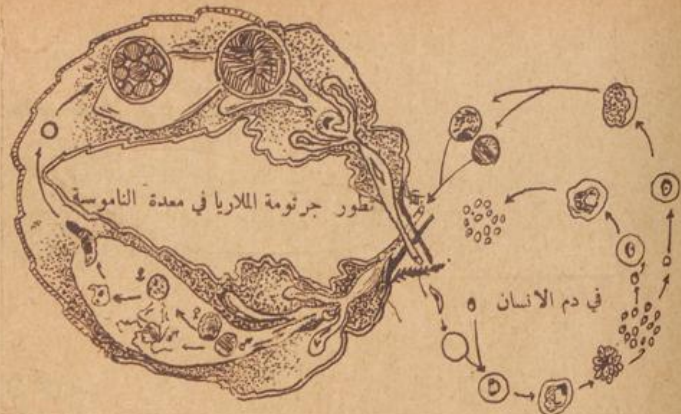 تطور جرثومة الملاريا في معدة الناموسة
في دم الانسان